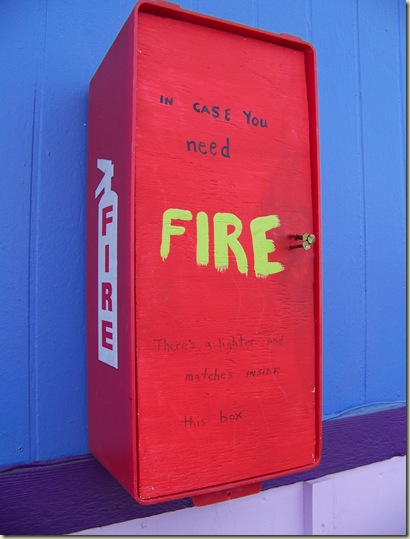 IN CASE YOU
need
FIRE
There's a lighter and
matches INSIDE
this box
FIRE